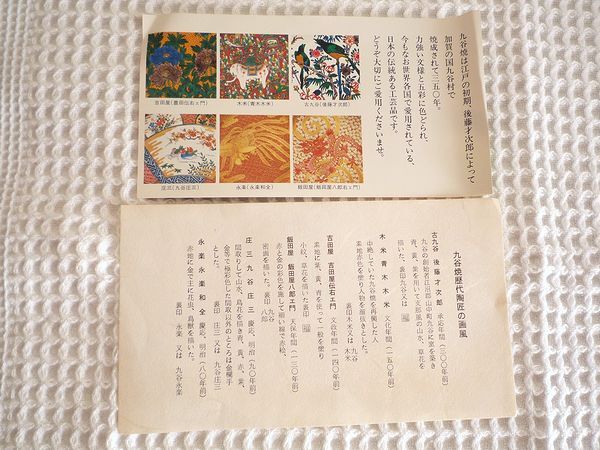 九谷焼は江戸の初期、後藤才次郎によって
加賀の国九谷村で
焼成されて三五〇年。
力強い文様と五彩に色どられ、
今もなお世界各国で愛用されている、
日本の伝統ある工芸品です。
どうぞ大切にご愛用くださいませ。
古九谷(後藤才次郎)
木米(青木木米)
吉田屋(豊田伝右ェ門)
飯田屋(飯田屋八郎右ェ門)
永楽(永楽和全)
庄三(九谷庄三)
九谷焼歴代陶匠の画風
古九谷 後藤才次郎 承応年間(三〇〇年前)
九谷の創始者江沼郡山中町九谷に窯を築き
青、黄、紫を用いて支那風の山水、草花を
描いた。裏印九谷又は
木米 青木木米 文化年間(一五〇年前)
中絶していた九谷焼を再興した人
素地赤色を塗り人物を細抜きとした。
裏印木米又は 九谷木米
吉田屋 吉田屋伝右エ門 文政年間(一四〇年前)
素地に紫、黄、青を使って一般を塗り
小紋、草花を描いた裏印
飯田屋 飯田屋八郎エ門 天保年間(一三〇年前)
赤と金の彩色を施して細い線で赤松、
密画を描いた。裏印 九谷八郎
庄三 九谷庄三 慶応、明治(九〇年前)
間取りして山水、鳥花を描き青、黄、赤、紫、
金等で極彩色した間取以外のところは金欄手
とした。 裏印 庄三 又は 九谷庄三
永楽 永楽和全 慶応、明治(八〇年前)
赤地に金で主に花虫、鳥獣を描いた。
裏印 永楽 又は 九谷永楽